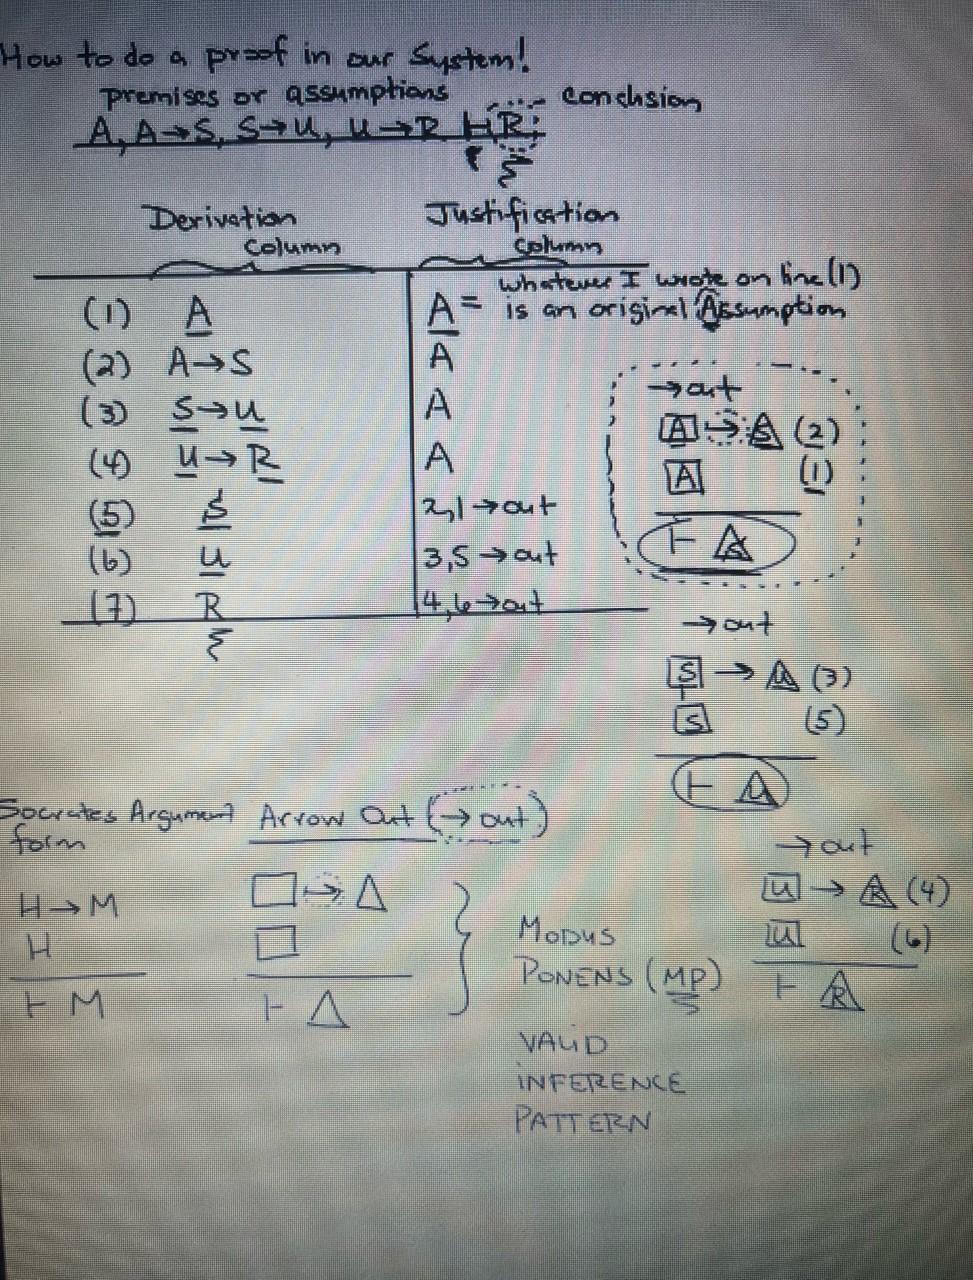 How to do a proof in our System!
premises or assumptions conclusion
A, A→S, S→U, U→R ⊢R;
Derivation Column
Justification Column
(1) A A = whatever I wrote on line (1) is an original Assumption
(2) A→S A
(3) S→U A
(4) U→R A
(5) S 2,1 →out
(6) U 3,5 →out
(7) R 4,6 →out
→out
A → S (2)
A (1)
⊢ S
→out
S → U (3)
S (5)
⊢ U
→out
U → R (4)
U (6)
⊢ R
Socrates Argument form
H→M
H
⊢ M
Arrow Out (→ out)
□ → Δ
□
⊢ Δ
MODUS
PONENS (MP)
VALID
INFERENCE
PATTERN